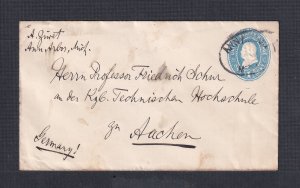 A. Zиwet
Ann Arbor, Mich.
Herrn Professor Friedrich Schur
an der Kgl. Technischen Hochschule
zu
Aachen
Germany!